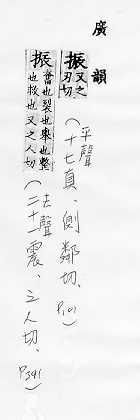 廣韻
振又之刃切(平聲十七真、側鄰切、P.101)
振奮也裂也舉也整也救也又之人切(去聲二十一震、之人切、P.391)